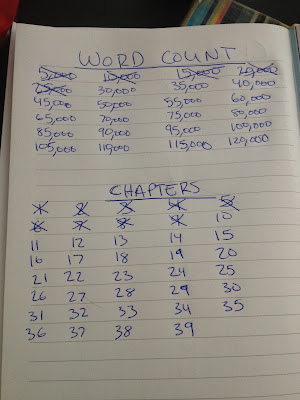 WORD COUNT
5,000 10,000 15,000 20,000
25,000 30,000 35,000 40,000
45,000 50,000 55,000 60,000
65,000 70,000 75,000 80,000
85,000 90,000 95,000 100,000
105,000 110,000 115,000 120,000
CHAPTERS
1 2 3 4 5
6 7 8 9 10
11 12 13 14 15
16 17 18 19 20
21 22 23 24 25
26 27 28 29 30
31 32 33 34 35
36 37 38 39